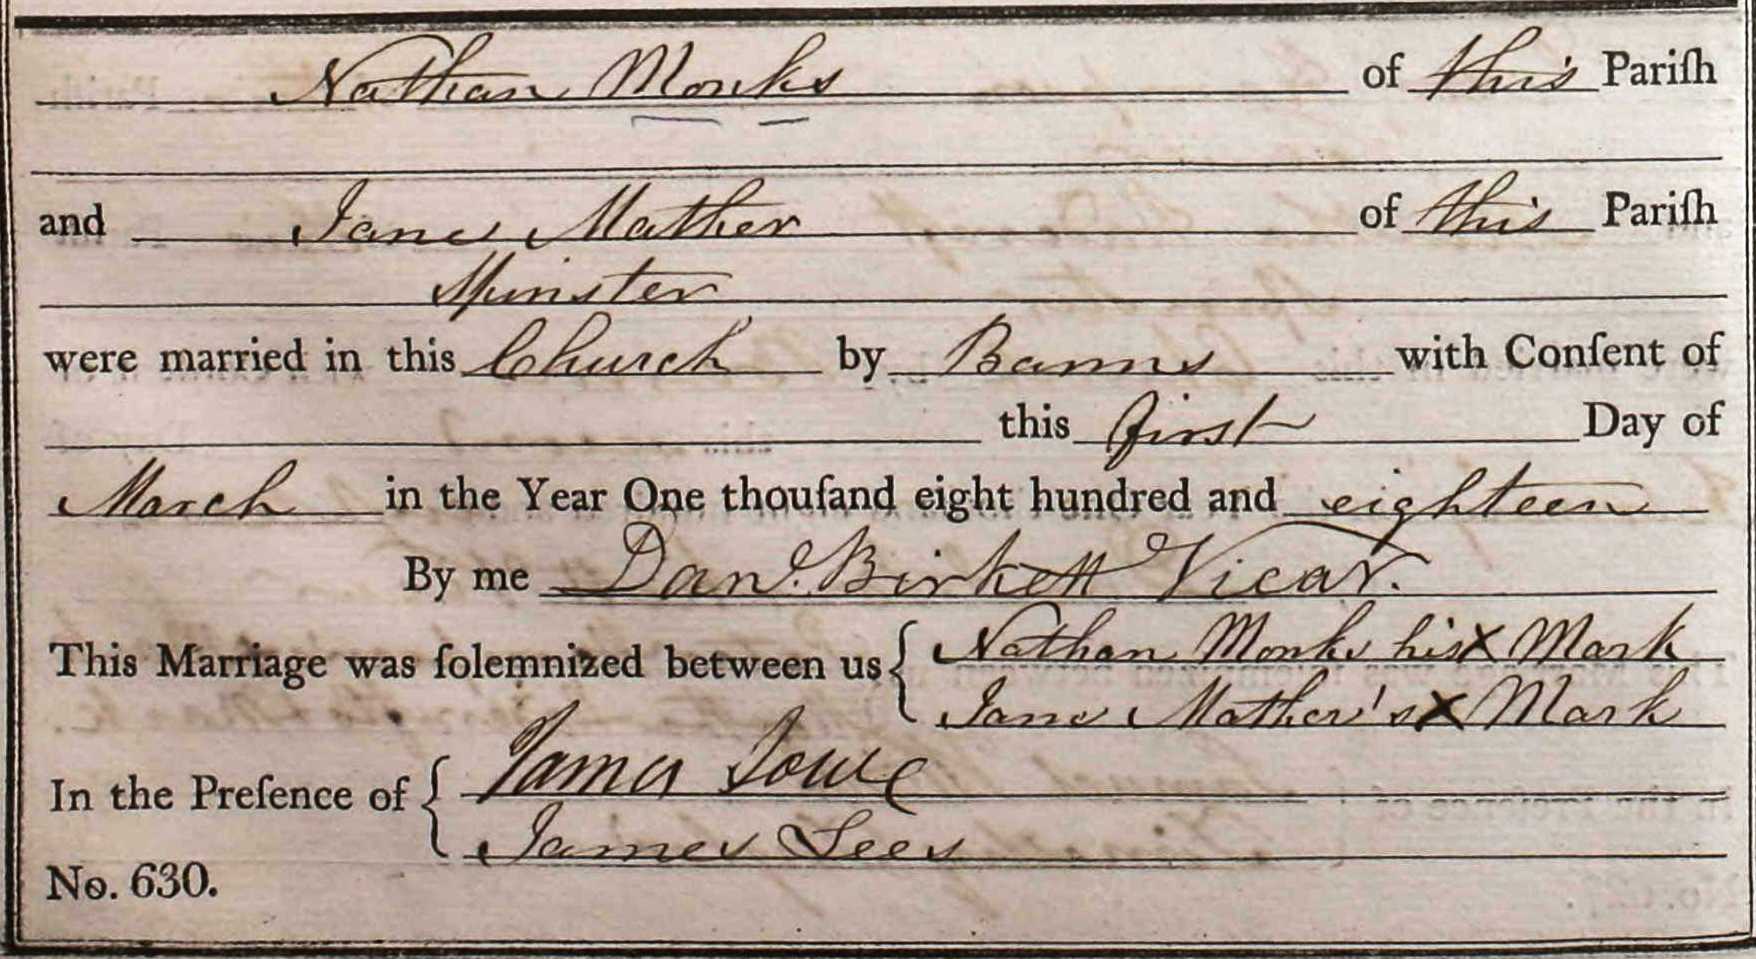 Nathan Monks of this Pariſh
and Jane Mather of this Pariſh
Spinster
were married in this Church by Banns with Conſent of
this first Day of
March in the Year One thouſand eight hundred and eighteen
By me Danl. Birkett Vicar.
This Marriage was ſolemnized between us { Nathan Monks his X Mark
Jane Mather's X Mark
In the Preſence of { James
James Lees
No. 630.